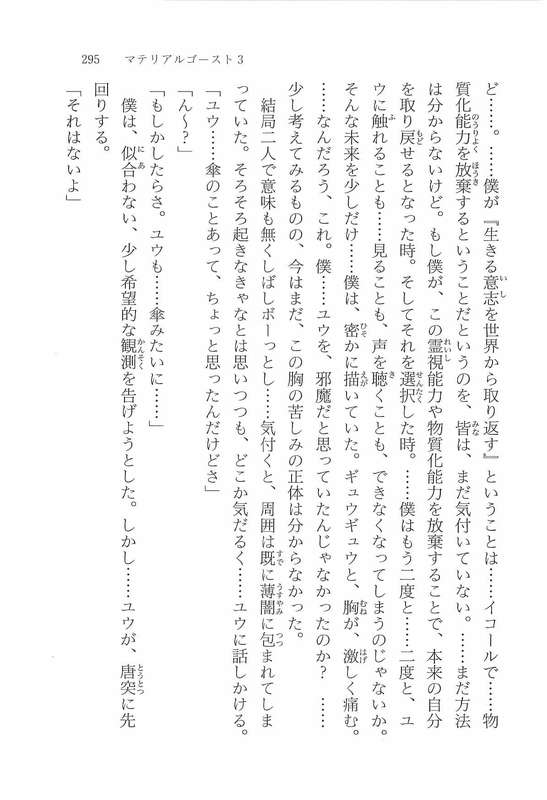 295　マテリアルゴースト3
ど……。……僕が『生きる意志を世界から取り返す』ということは……イコールで……物
質化能力を放棄するということだというのを、皆は、まだ気付いていない。……まだ方法
は分からないけど。もし僕が、この霊視能力や物質化能力を放棄することで、本来の自分
を取り戻せるとなった時。そしてそれを選択した時。……僕はもう二度と……二度と、ユ
ウに触れることも……見ることも、声を聴くことも、できなくなってしまうのじゃないか。
そんな未来を少しだけ……僕は、密かに描いていた。ギュウギュウと、胸が、激しく痛む。
……なんだろう、これ。僕……ユウを、邪魔だと思っていたんじゃなかったのか？　……
少し考えてみるものの、今はまだ、この胸の苦しみの正体は分からなかった。
　結局二人で意味も無くしばしボーっとし……気付くと、周囲は既に薄闇に包まれてしま
っていた。そろそろ起きなきゃなとは思いつつも、どこか気だるく……ユウに話しかける。
「ユウ……傘のことあって、ちょっと思ったんだけどさ」
「ん～？」
「もしかしたらさ。ユウも……傘みたいに……」
　僕は、似合わない、少し希望的な観測を告げようとした。しかし……ユウが、唐突に先
回りする。
「それはないよ」